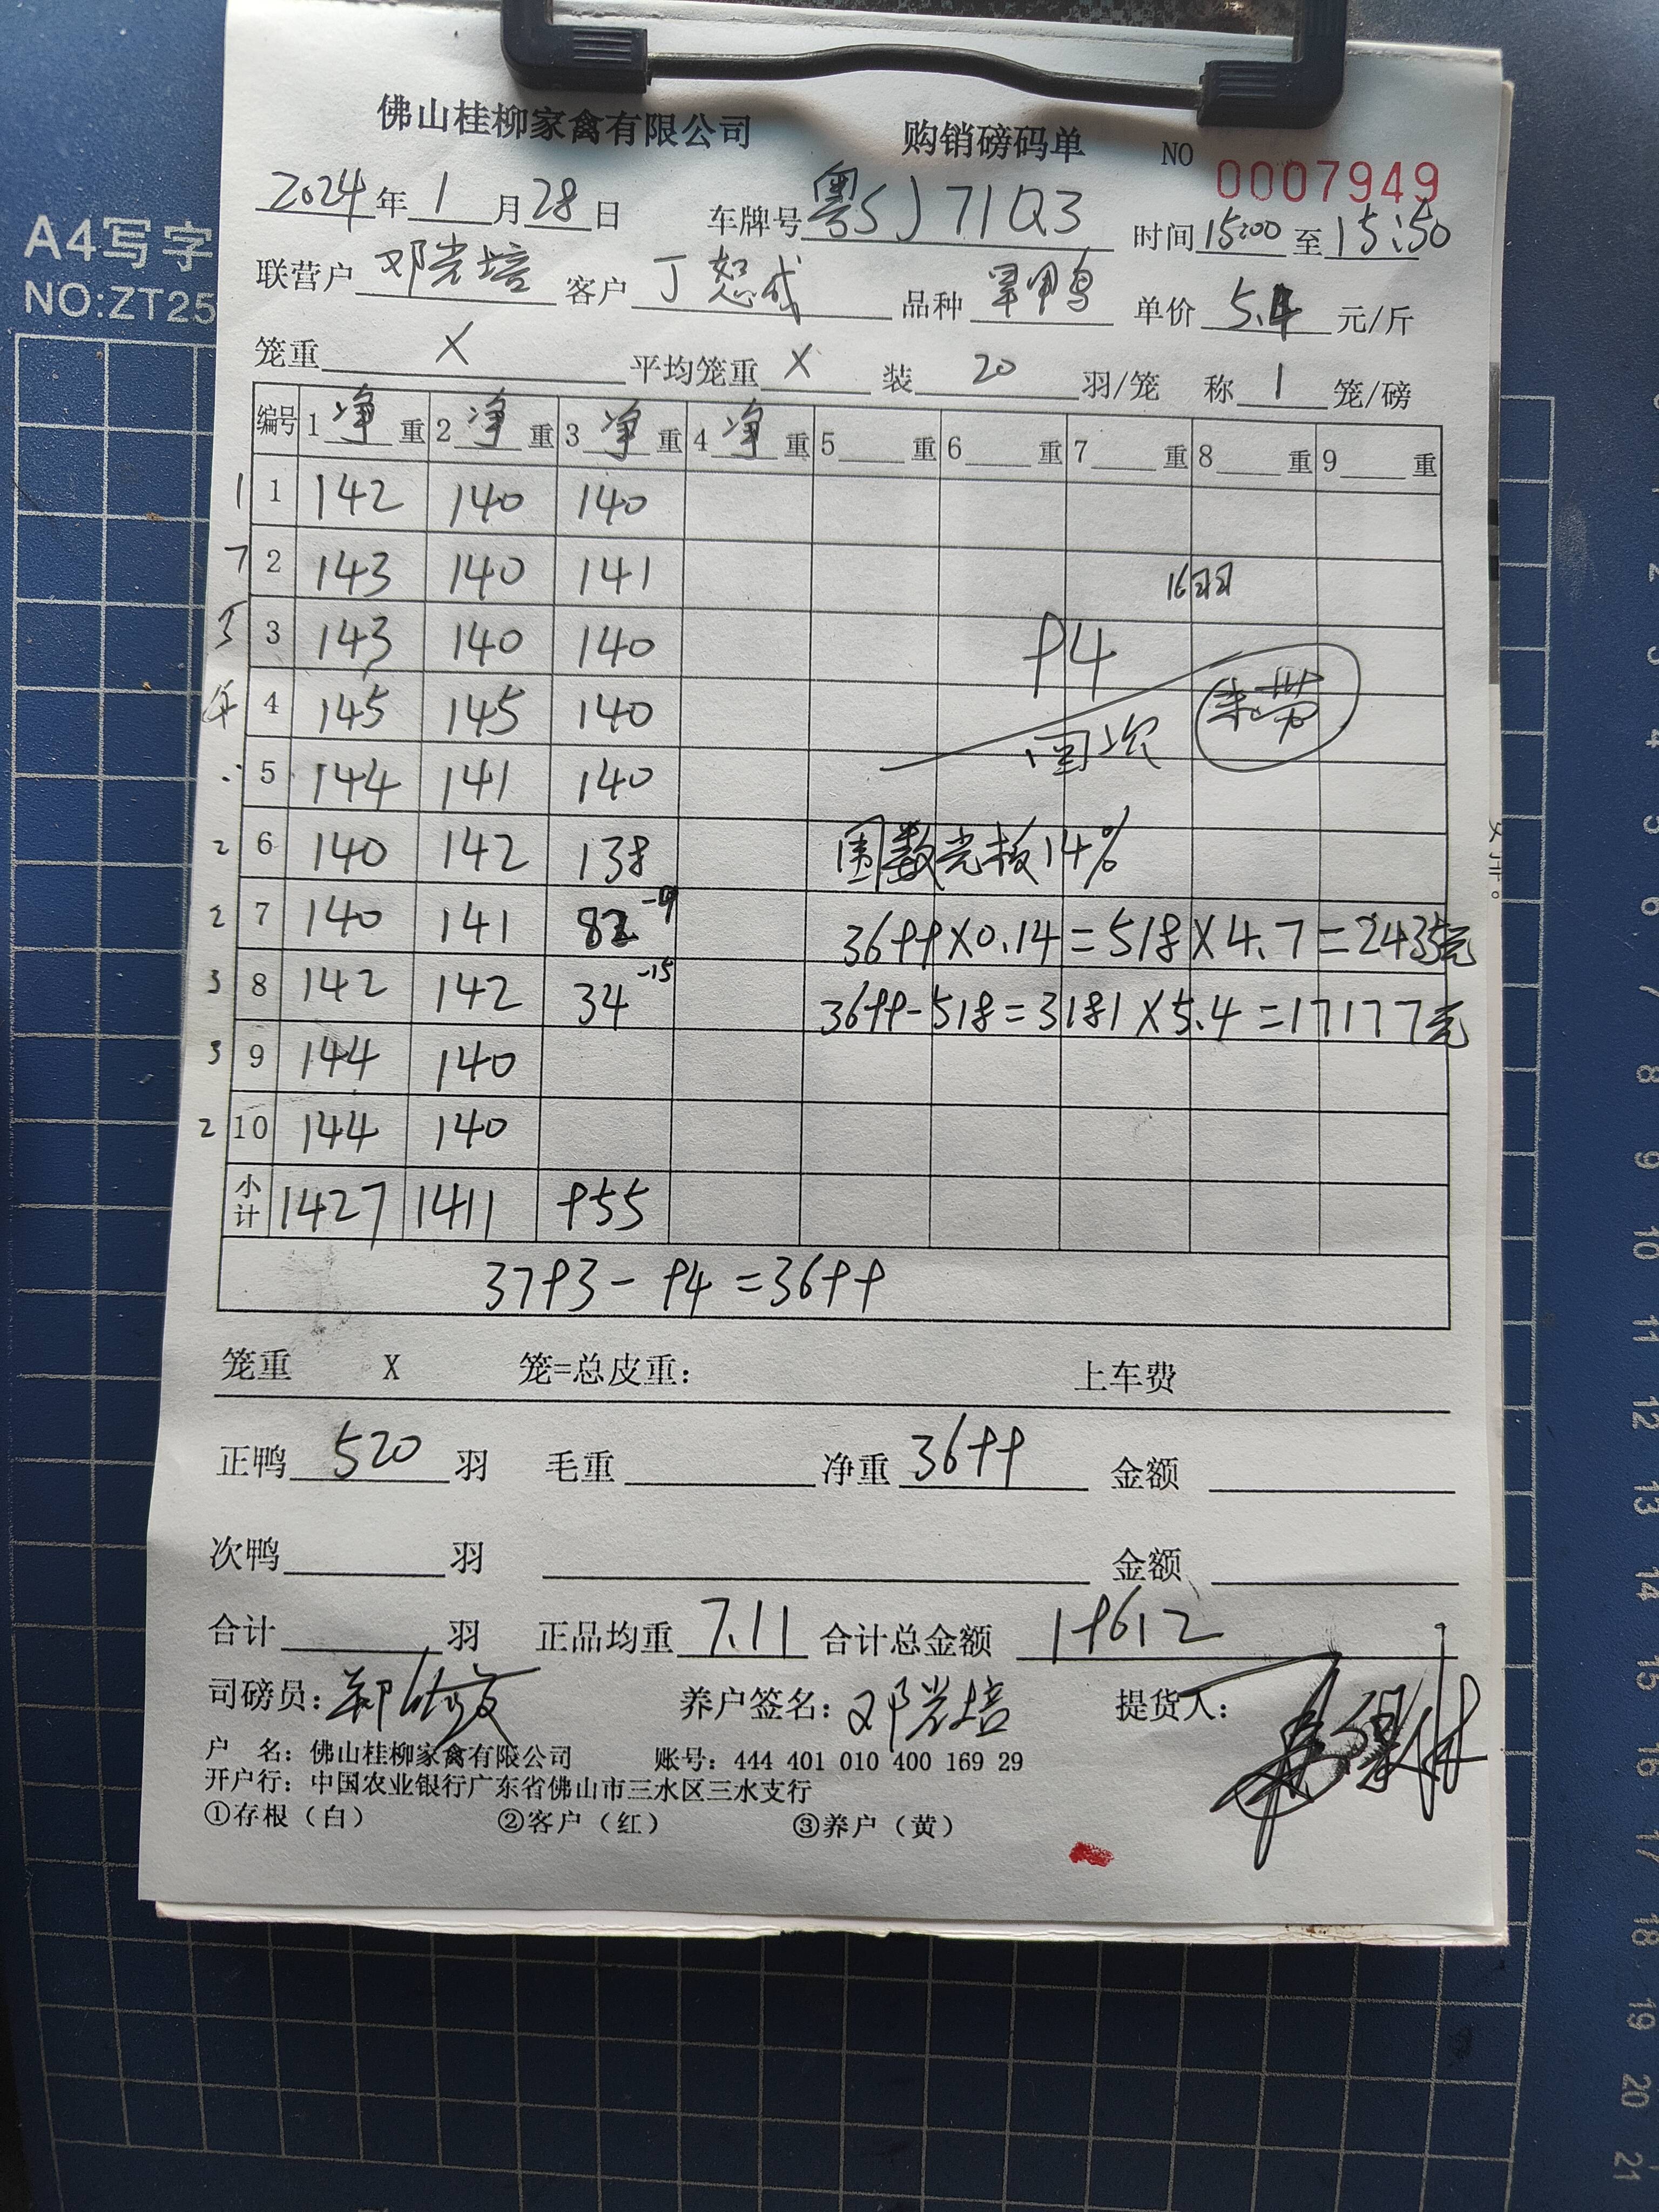 佛山桂柳家禽有限公司 购销磅码单 NO 0007949
2024年1月28日 车牌号 粤SJ71Q3 时间15:00至15:50
联营户 邓光培 客户 丁恕成 品种 旱鸭 单价 5.4 元/斤
笼重 X 平均笼重 X 装 20 羽/笼 称 1 笼/磅
编号 1 净 重 2 净 重 3 净 重 4 净 重 5 重 6 重 7 重 8 重 9 重
1 1 142 140 140
7 2 143 140 141 16羽
5 3 143 140 140 94
4 145 145 140
5 144 141 140
2 6 140 142 138 围数光板14%
2 7 140 141 82 3699X0.14=518X4.7=2435元
3 8 142 142 34 -15 3699-518=3181X5.4=17177元
3 9 144 140
2 10 144 140
小计 1427 1411 955
3793-94=3699
笼重 X 笼=总皮重: 上车费
正鸭 520 羽 毛重 净重 3699 金额
次鸭 羽 金额
合计 羽 正品均重 7.11 合计总金额 19612
司磅员: 养户签名: 邓光培 提货人:
户 名: 佛山桂柳家禽有限公司 账号: 444 401 010 400 169 29
开户行: 中国农业银行广东省佛山市三水区三水支行
①存根（白） ②客户（红） ③养户（黄）
A4写字
NO:ZT25
2
3
4
5
6
7
8
9
10
11
12
13
14
15
16
17
18
19
20
21